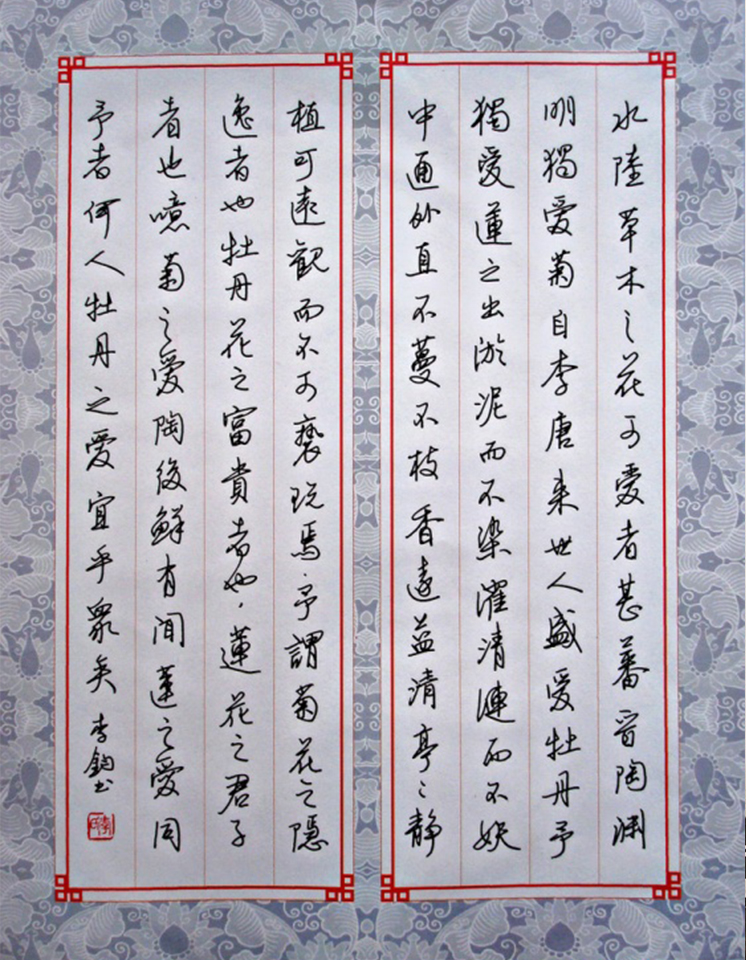 水陸草木之花可愛者甚蕃晋陶渊
明獨愛菊自李唐来世人盛愛牡丹予
獨愛蓮之出淤泥而不染濯清漣而不妖
中通外直不蔓不枝香遠益清亭〻静
植可遠觀而不可褻玩焉，予謂菊花之隱
逸者也牡丹花之富貴者也，蓮花之君子
者也噫菊之愛陶後鮮有聞蓮之愛同
予者何人牡丹之愛宜乎眾矣 李鈞书